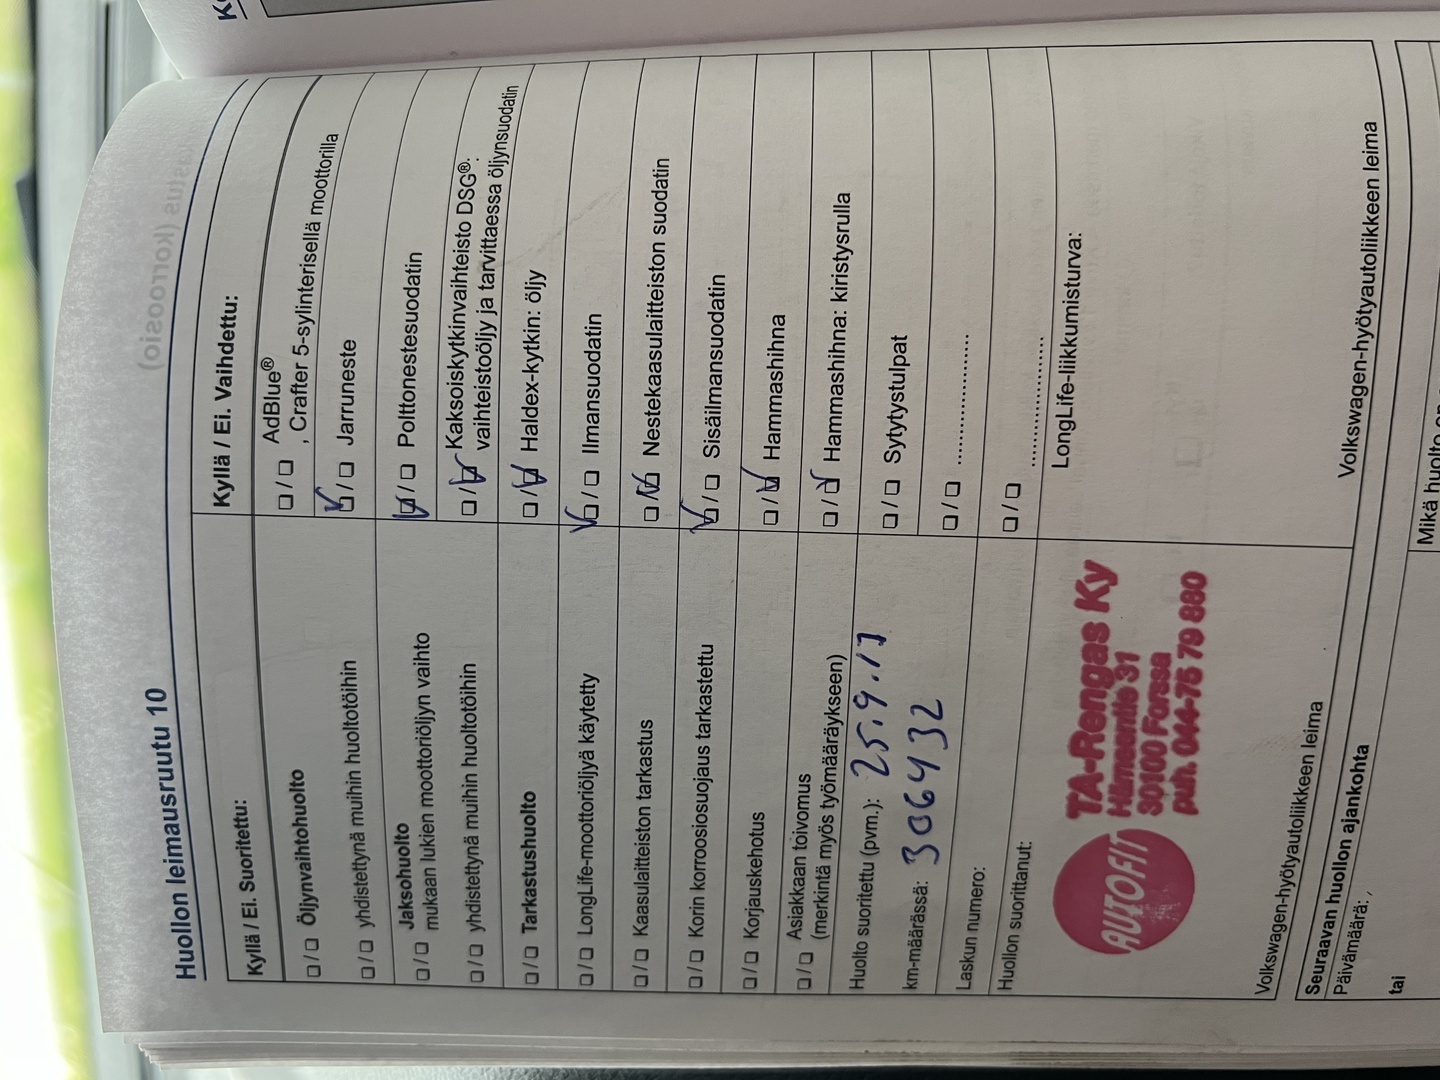 Huollon leimausruutu 10
Kyllä / Ei. Suoritettu:
❏ / ❏ Öljynvaihtohuolto
❏ / ❏ yhdistettynä muihin huoltotöihin
Jaksohuolto
❏ / ❏ mukaan lukien moottoriöljyn vaihto
❏ / ❏ yhdistettynä muihin huoltotöihin
❏ / ❏ Tarkastushuolto
❏ / ❏ LongLife-moottoriöljyä käytetty
❏ / ❏ Kaasulaitteiston tarkastus
❏ / ❏ Korin korroosiosuojaus tarkastettu
❏ / ❏ Korjauskehotus
❏ / ❏ Asiakkaan toivomus
(merkintä myös työmääräykseen)
Huolto suoritettu (pvm.): 25.9.17
km-määrässä: 306432
Laskun numero:
Huollon suorittanut:
AUTOFIT
TA-Rengas Ky
Hämeentie 31
30100 Forssa
puh. 044-75 79 880
Volkswagen-hyötyautoliikkeen leima
Kyllä / Ei. Vaihdettu:
❏ / ❏ AdBlue®
, Crafter 5-sylinterisellä moottorilla
☑ / ❏ Jarruneste
☑ / ❏ Polttonestesuodatin
❏ / ☑ Kaksoiskytkinvaihteisto DSG®:
vaihteistoöljy ja tarvittaessa öljynsuodatin
❏ / ☑ Haldex-kytkin: öljy
☑ / ❏ Ilmansuodatin
❏ / ☑ Nestekaasulaitteiston suodatin
☑ / ❏ Sisäilmansuodatin
❏ / ☑ Hammashihna
❏ / ☑ Hammashihna: kiristysrulla
❏ / ❏ Sytytystulpat
❏ / ❏ ....................
❏ / ❏ ....................
LongLife-liikkumisturva:
Volkswagen-hyötyautoliikkeen leima
Seuraavan huollon ajankohta
Päivämäärä:
tai
Mikä huolto on